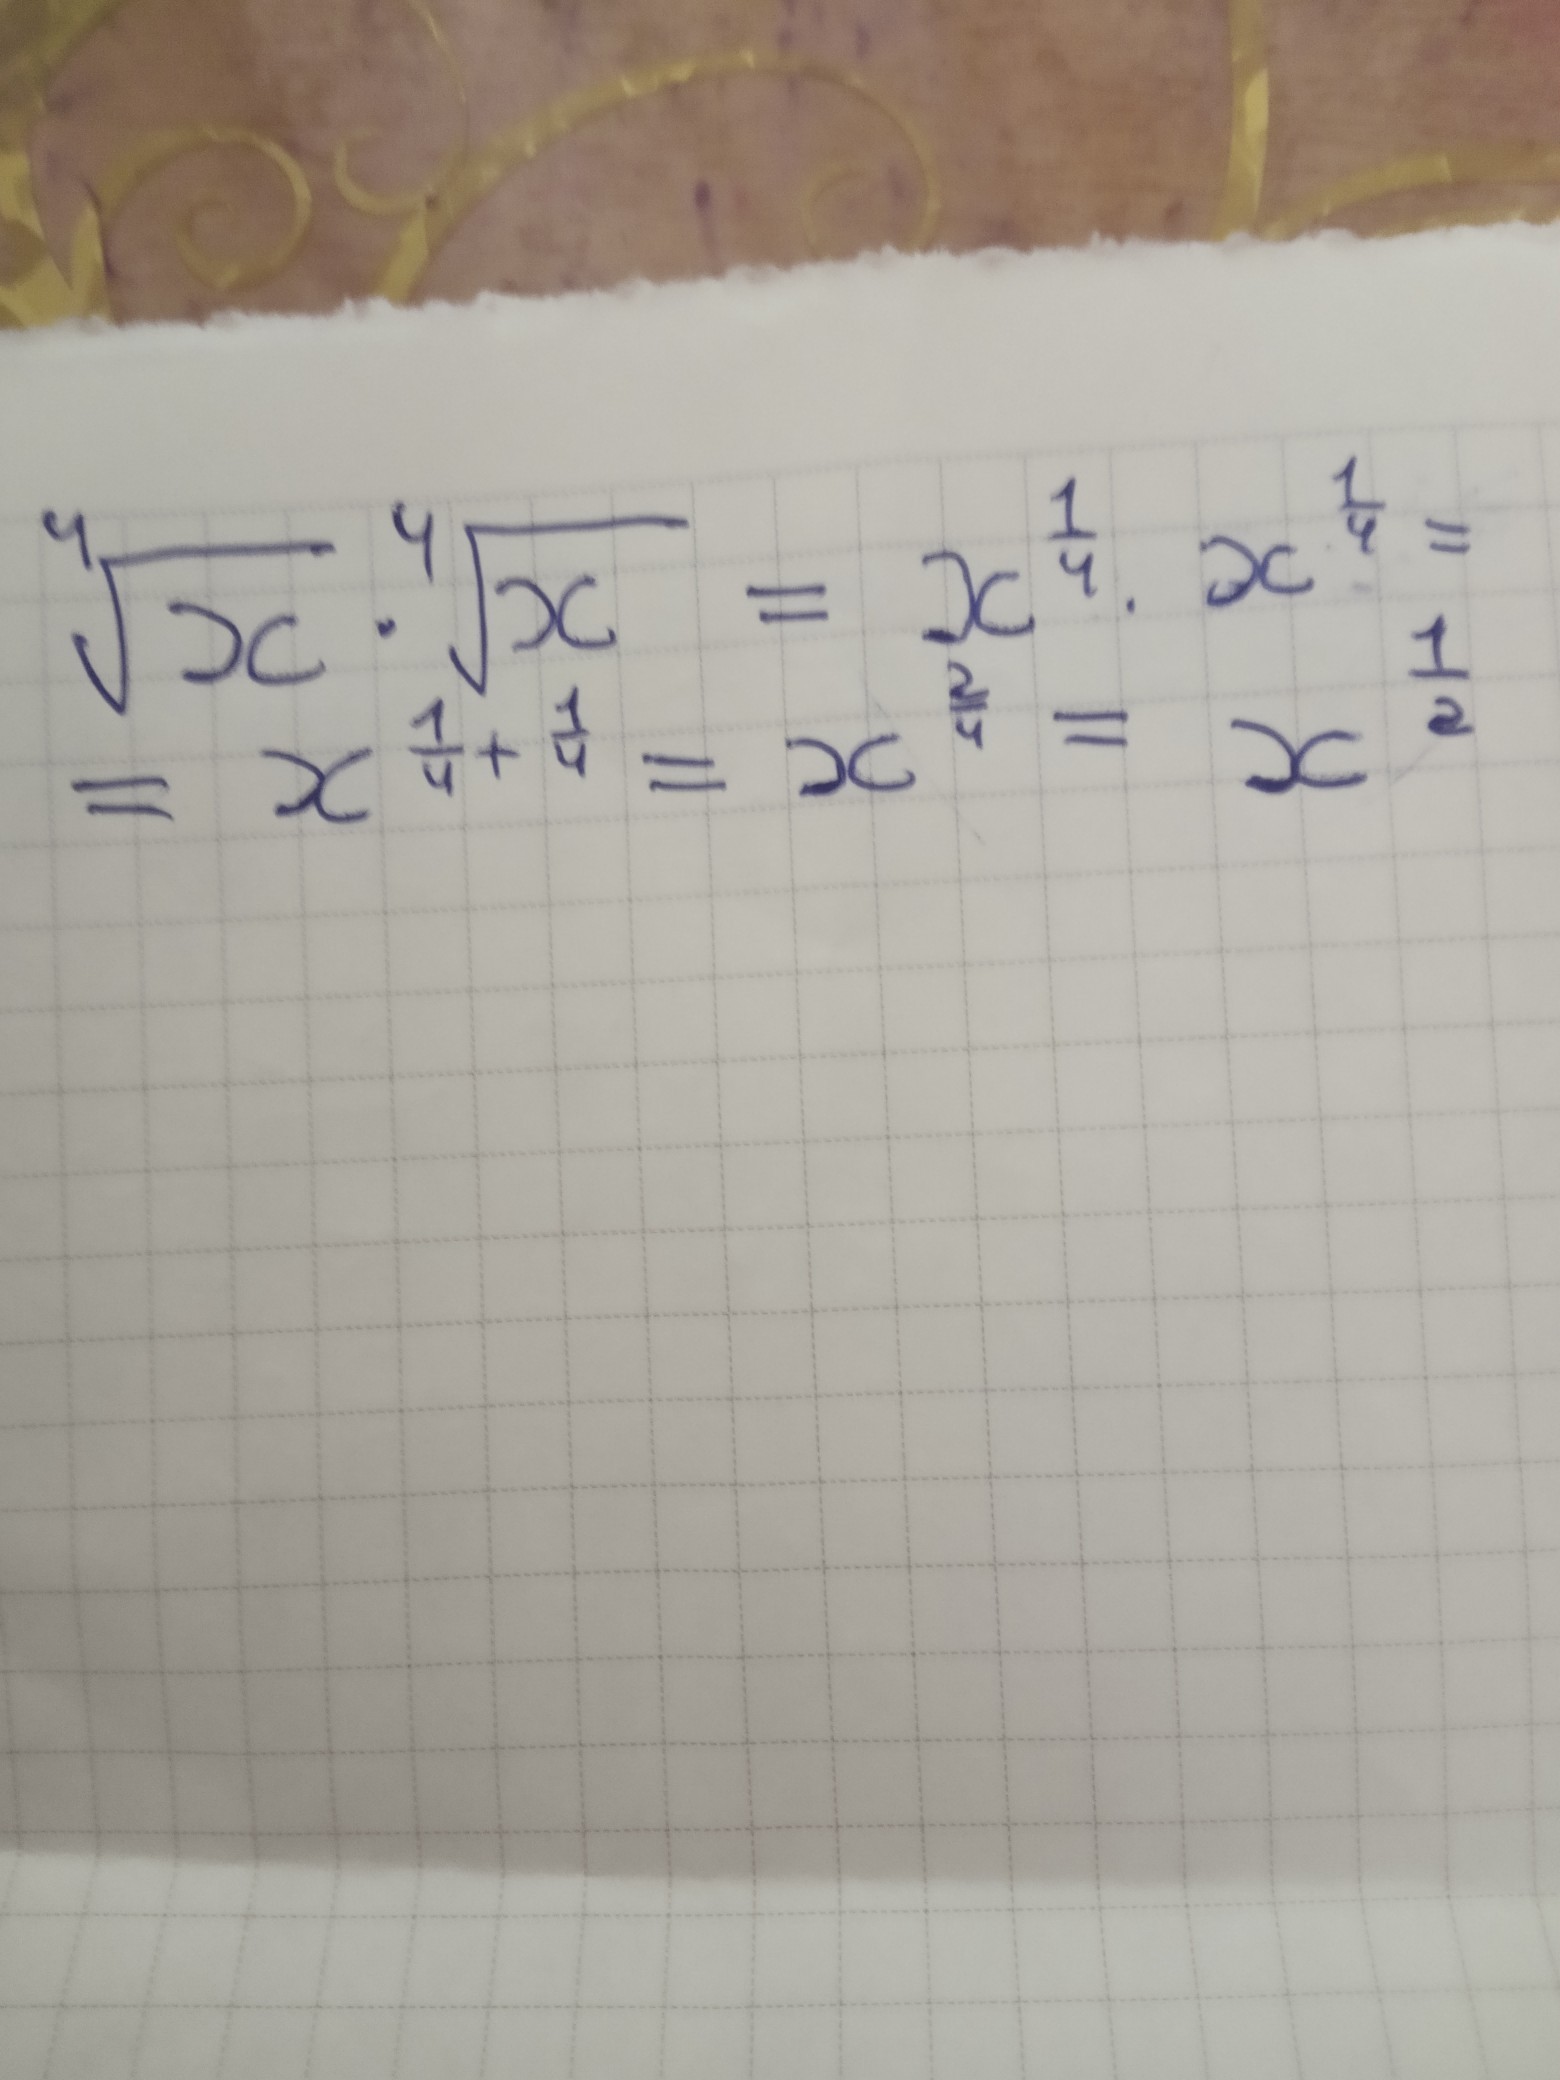 ⁴√x · ⁴√x = x^(1/4) · x^(1/4) =
= x^(1/4 + 1/4) = x^(2/4) = x^(1/2)